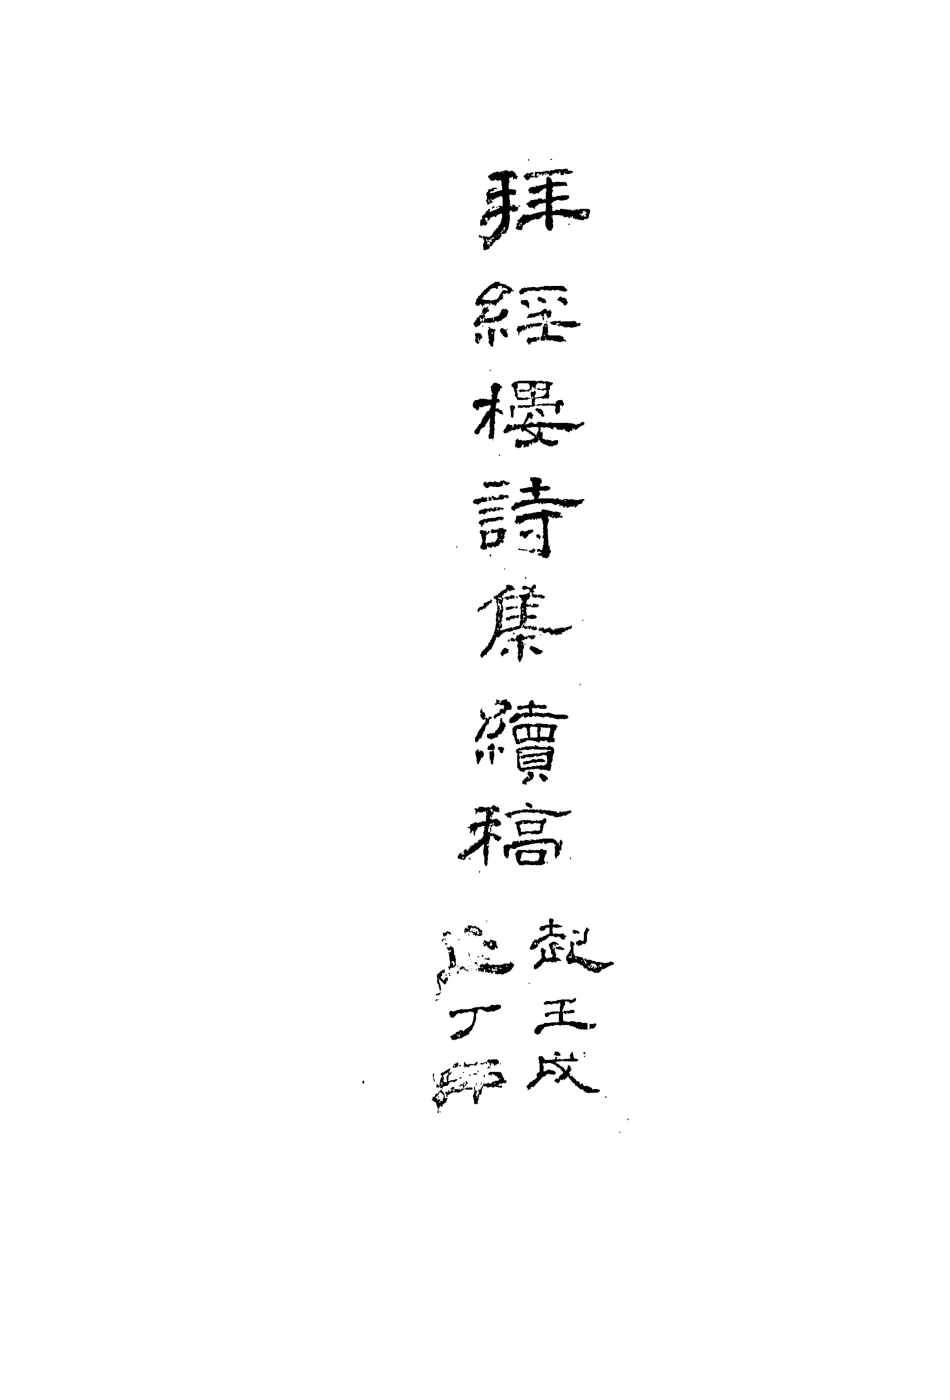 拜經樓詩集續稿
起壬戌
迄丁卯